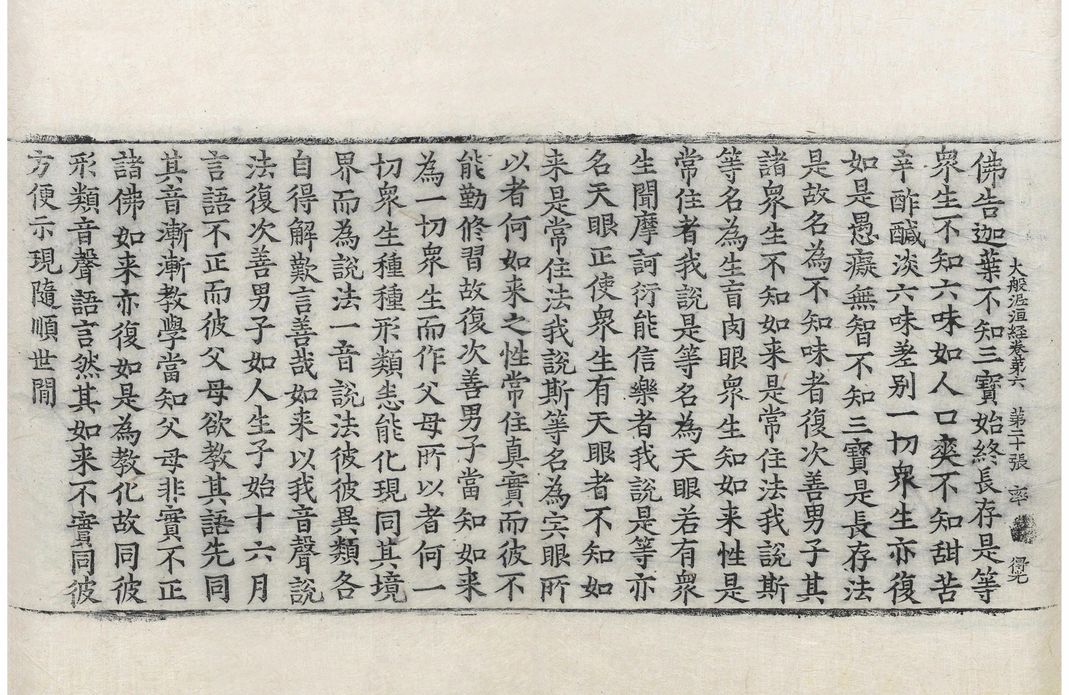 大般泥洹経卷第六 第二十張 率
佛告迦葉不知三寶始終長存是等
衆生不知六味如人口爽不知甜苦
辛酢鹹淡六味差别一切衆生亦復
如是愚癡無智不知三寶是長存法
是故名為不知味者復次善男子其
諸衆生不知如来是常住法我說斯
等名為生盲肉眼衆生知如来性是
常住者我說是等名為天眼若有衆
生聞摩訶衍能信樂者我說是等亦
名天眼正使衆生有天眼者不知如
来是常住法我說斯等名為宍眼所
以者何如来之性常住真實而彼不
能勤修習故復次善男子當知如来
為一切衆生而作父母所以者何一
切衆生種種形類悉能化現同其境
界而為說法一音說法彼彼異類各
自得解歎言善哉如来以我音聲說
法復次善男子如人生子始十六月
言語不正而彼父母欲教其語先同
其音漸漸教學當知父母非實不正
諸佛如来亦復如是為教化故同彼
形類音聲語言然其如来不實同彼
方便示現隨順世閒